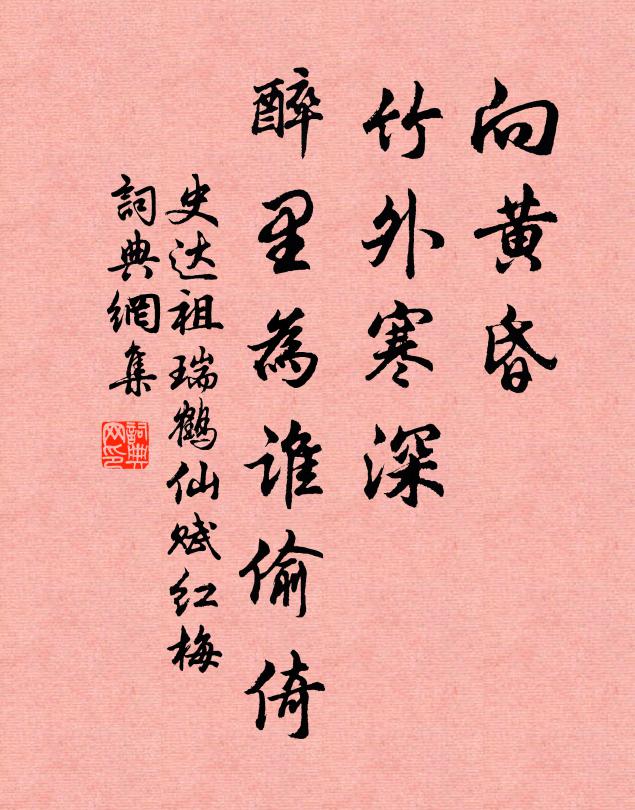 向黄昏
竹外寒深
醉里為谁偷倚
史达祖瑞鹤仙赋红梅
詞典網集
詞典网印